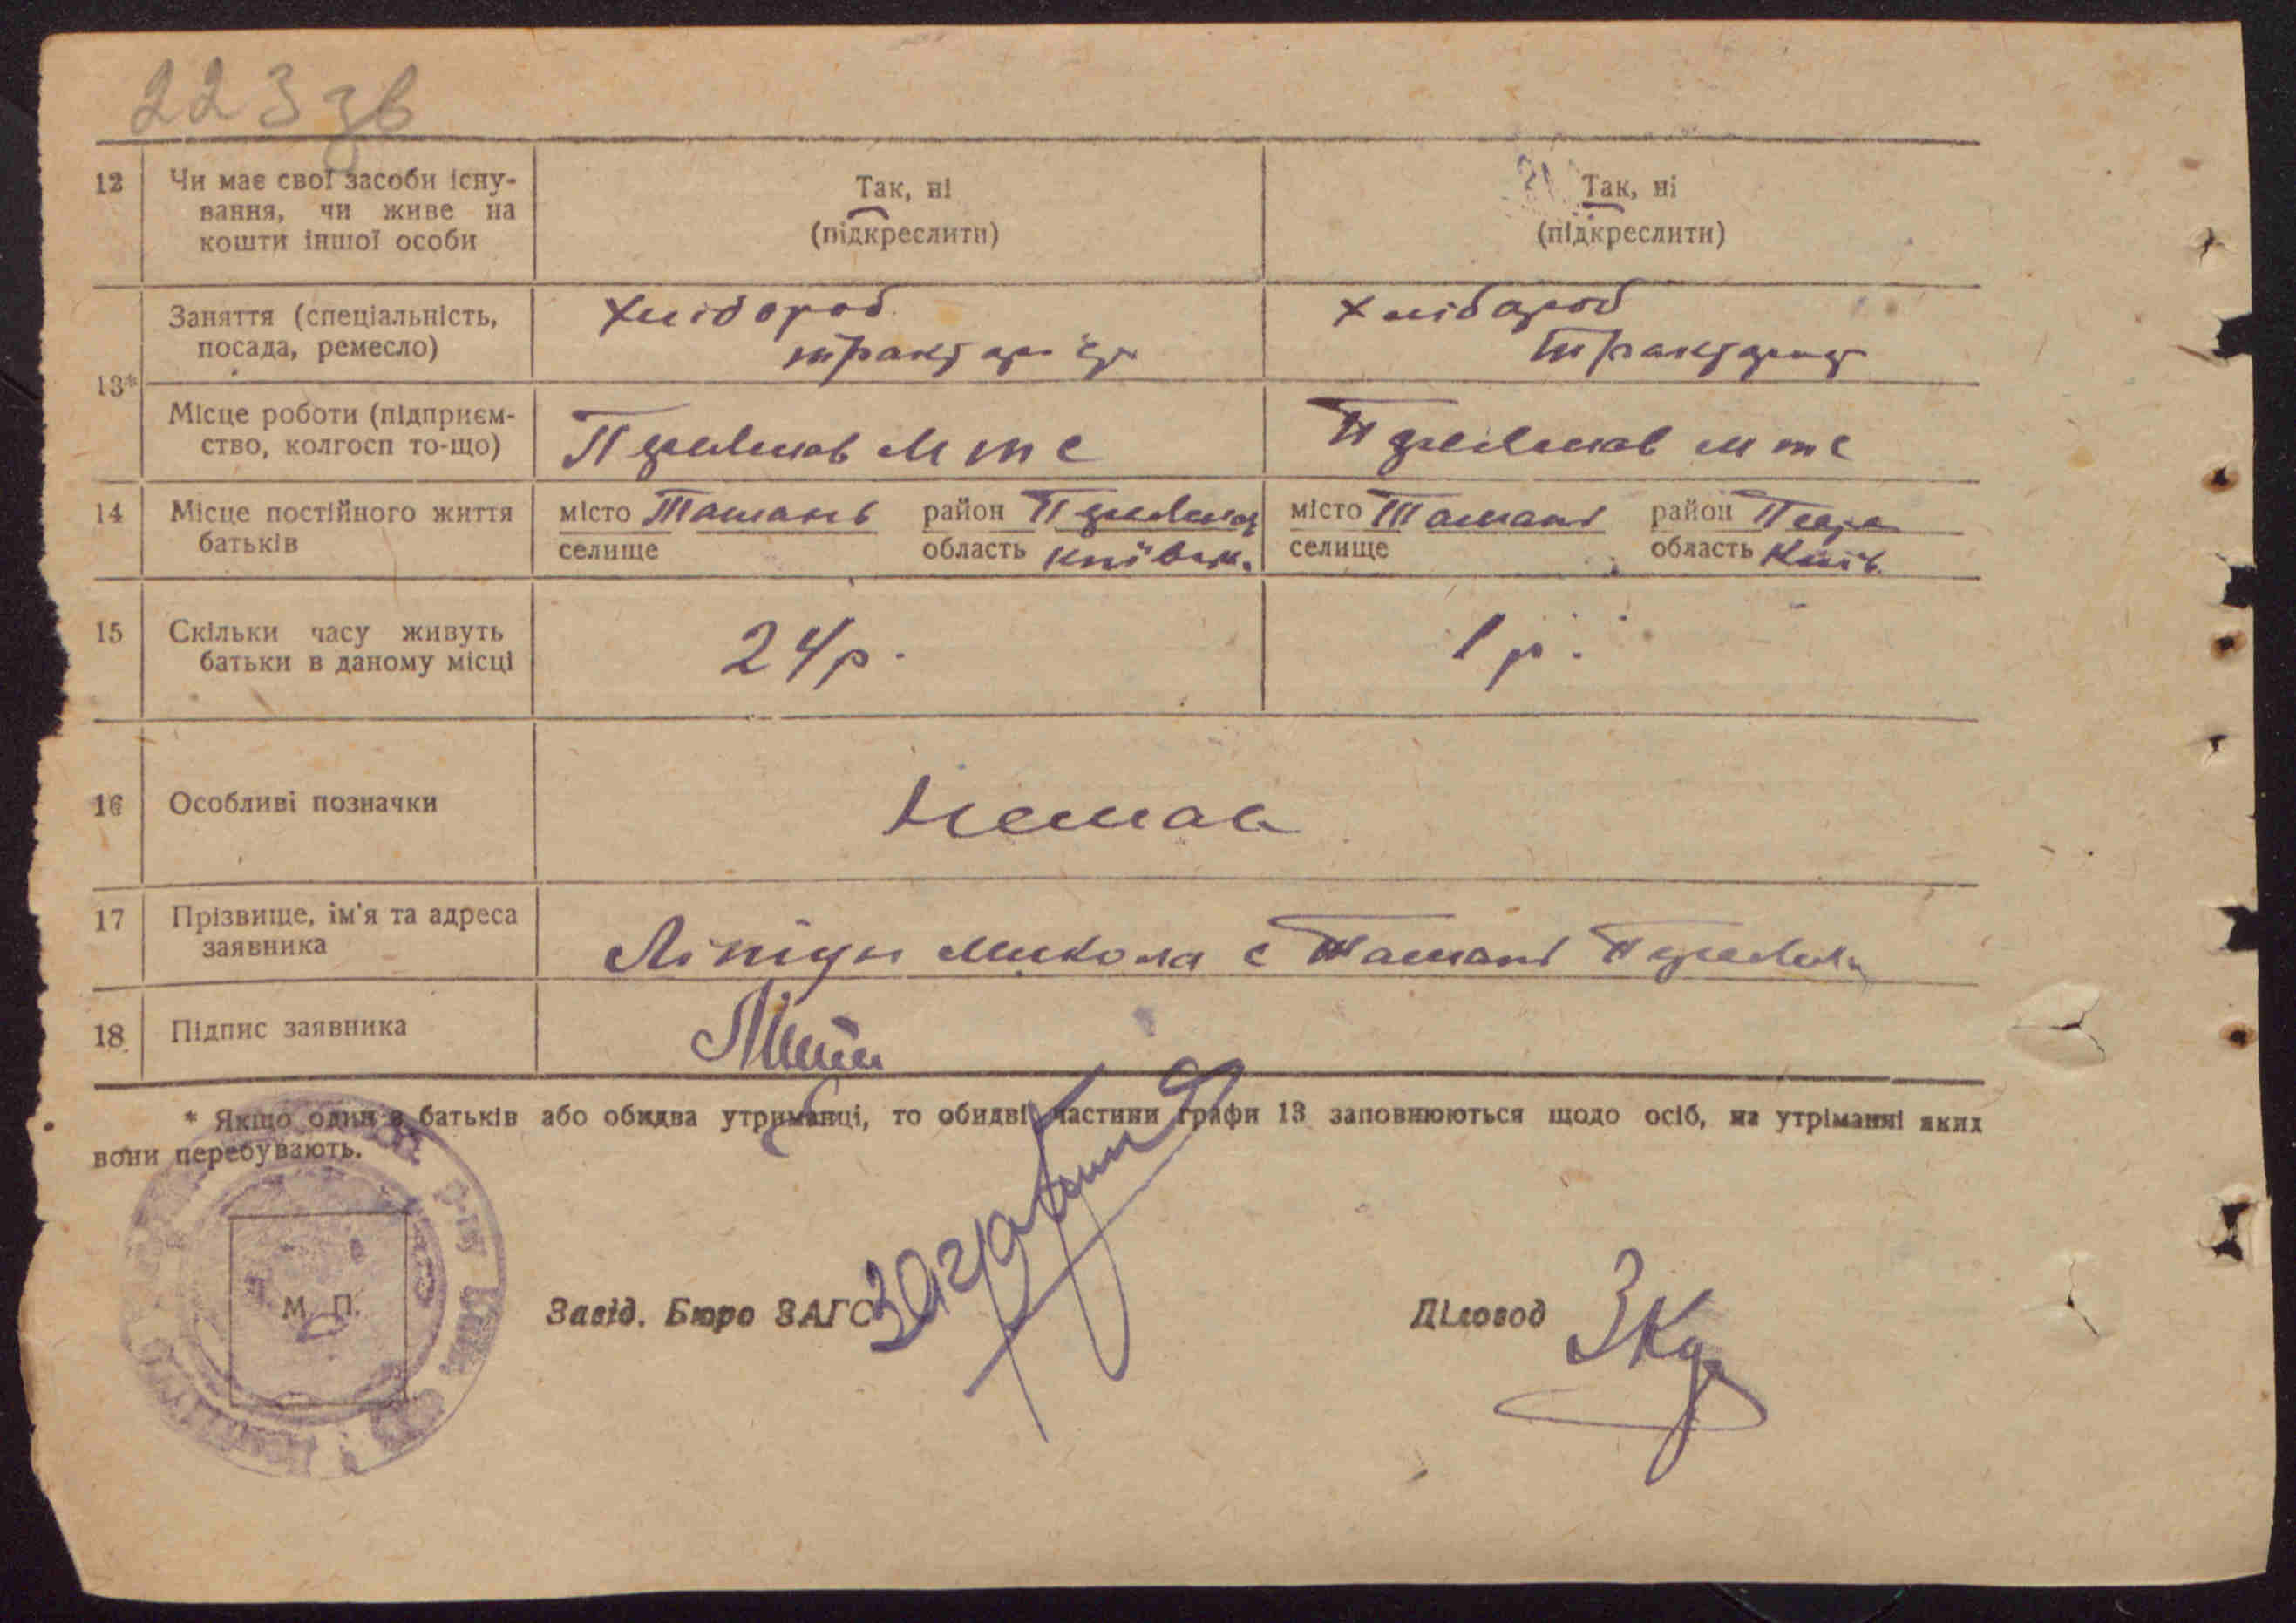 223 зв
12 Чи має свої засоби існу-
вання, чи живе на
кошти іншої особи
Так, ні
(підкреслити)
Так, ні
(підкреслити)
13*
Заняття (спеціальність,
посада, ремесло)
Хлібороб
Хлібороб
Місце роботи (підприєм-
ство, колгосп то-що)
МТС
МТС
14 Місце постійного життя
батьків
місто Ташань район
селище область Київськ.
місто Ташань район
селище область Київ.
15 Скільки часу живуть
батьки в даному місці
24 р.
1 р.
16 Особливі позначки
Немає
17 Прізвище, ім'я та адреса
заявника
Микола с Ташань
18 Підпис заявника
* Якщо один з батьків або обидва утриманці, то обидві частини графи 13 заповнюються щодо осіб, на утріманні яких
вони перебувають.
М. П.
Завід. Бюро ЗАГС
Діловод